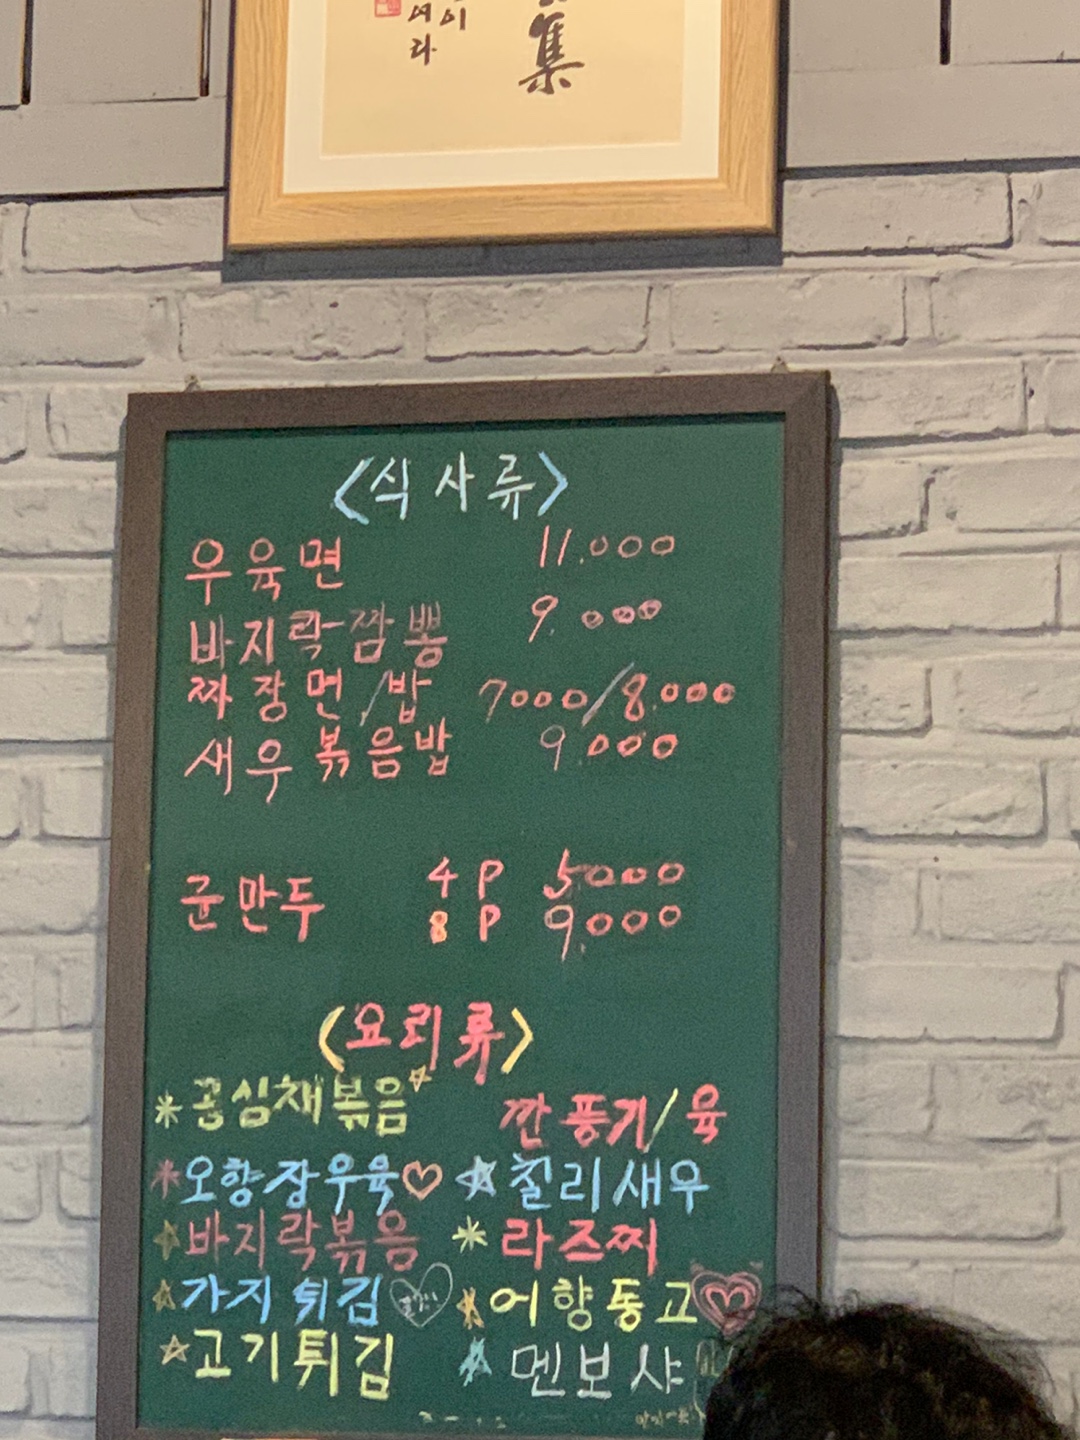 集
이
여라
<식사류>
우육면 11.000
바지락짬뽕 9.000
짜장면/밥 7000/8.000
새우볶음밥 9.000
군만두 4P 5000
8P 9.000
<요리류>
공심채볶음 깐풍기/육
오향장우육 칠리새우
바지락볶음 라즈찌
가지튀김 어향동고
고기튀김 멘보샤